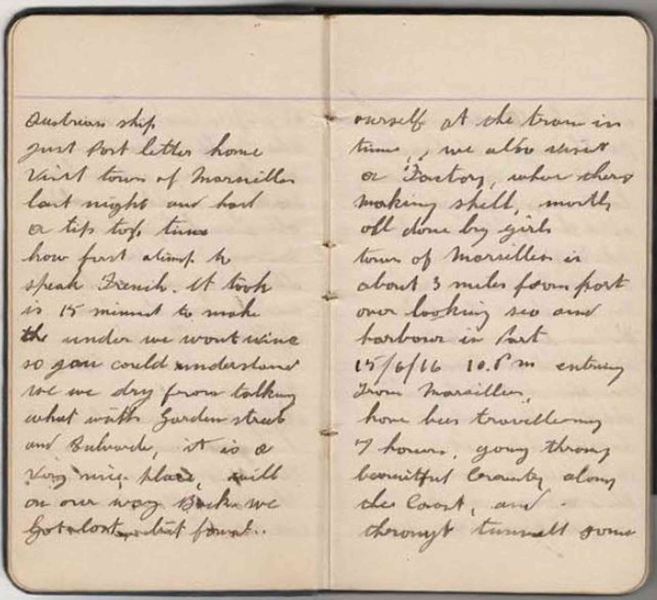 Austrian ship
just Post letter home
Visit town of Marseilles
last night and had
a tip top time
how first atimp to
speak French. it took
is 15 minuet to make
the under we wont wine
so you could understand
we we dry from talking
what with Garden street
and Bulvards, it is a
very nice place, will
on our way Back we
Got lost, but found..
ourself at the tram in
time, we also visit
a Factory, wher thers
making shell, mostly
all done by girls
town of Marseilles is
about 3 miles from port
over looking sea and
harbour in Port
15/6/16 10.Pm
From Marseilles,
have been travelling
7 hours, going throug
beauitful Country along
the Coast, and
througt tunnell some